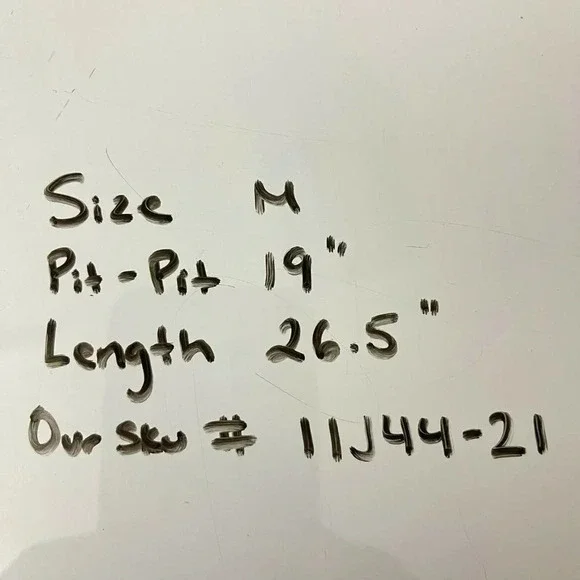 Size M
Pit-Pit 19"
Length 26.5"
Our Sku # 11J44-21